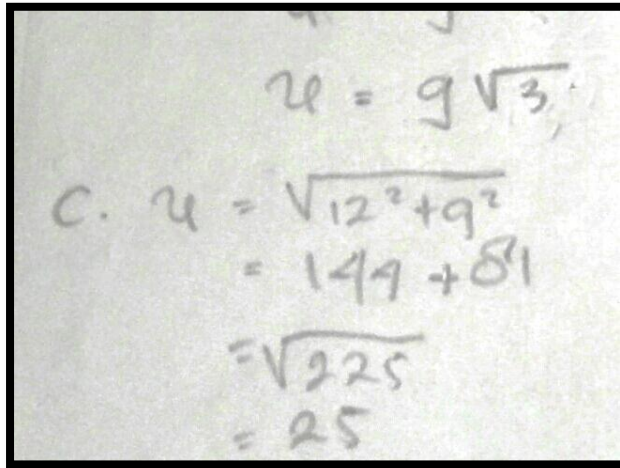 u = 9√3
C. u = √12²+9²
= 144 + 81
= √225
= 25